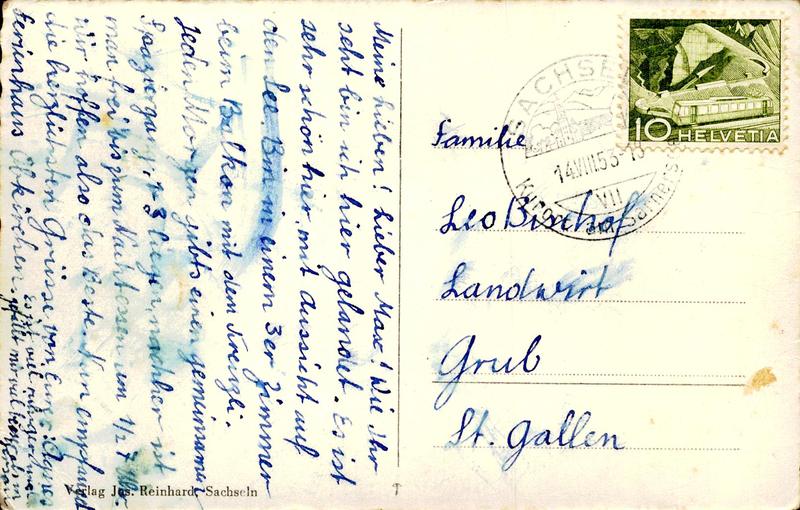 Meine Lieben! Lieber Max! Wie Ihr
seht bin ich hier gelandet. Es ist
sehr schön hier, mit Aussicht auf
den See. Bin in einem 3er Zimmer
beim Balkon mit dem Kreuzli.
Jeden Morgen gibts einen gemeinsamen
nachher ist
man frei bis zum Nachtessen um 1/2 7 Uhr.
Wir hoffen also das Beste. Nun empfangt
die herzlichsten Grüsse von Eurer Agnes
Ferienhaus Obkirchen
SACHSELN
14.VIII.53-18
VII
10 HELVETIA
Familie
Leo Bischof
Landwirt
Grub
St. Gallen
Verlag Jos. Reinhard, Sachseln